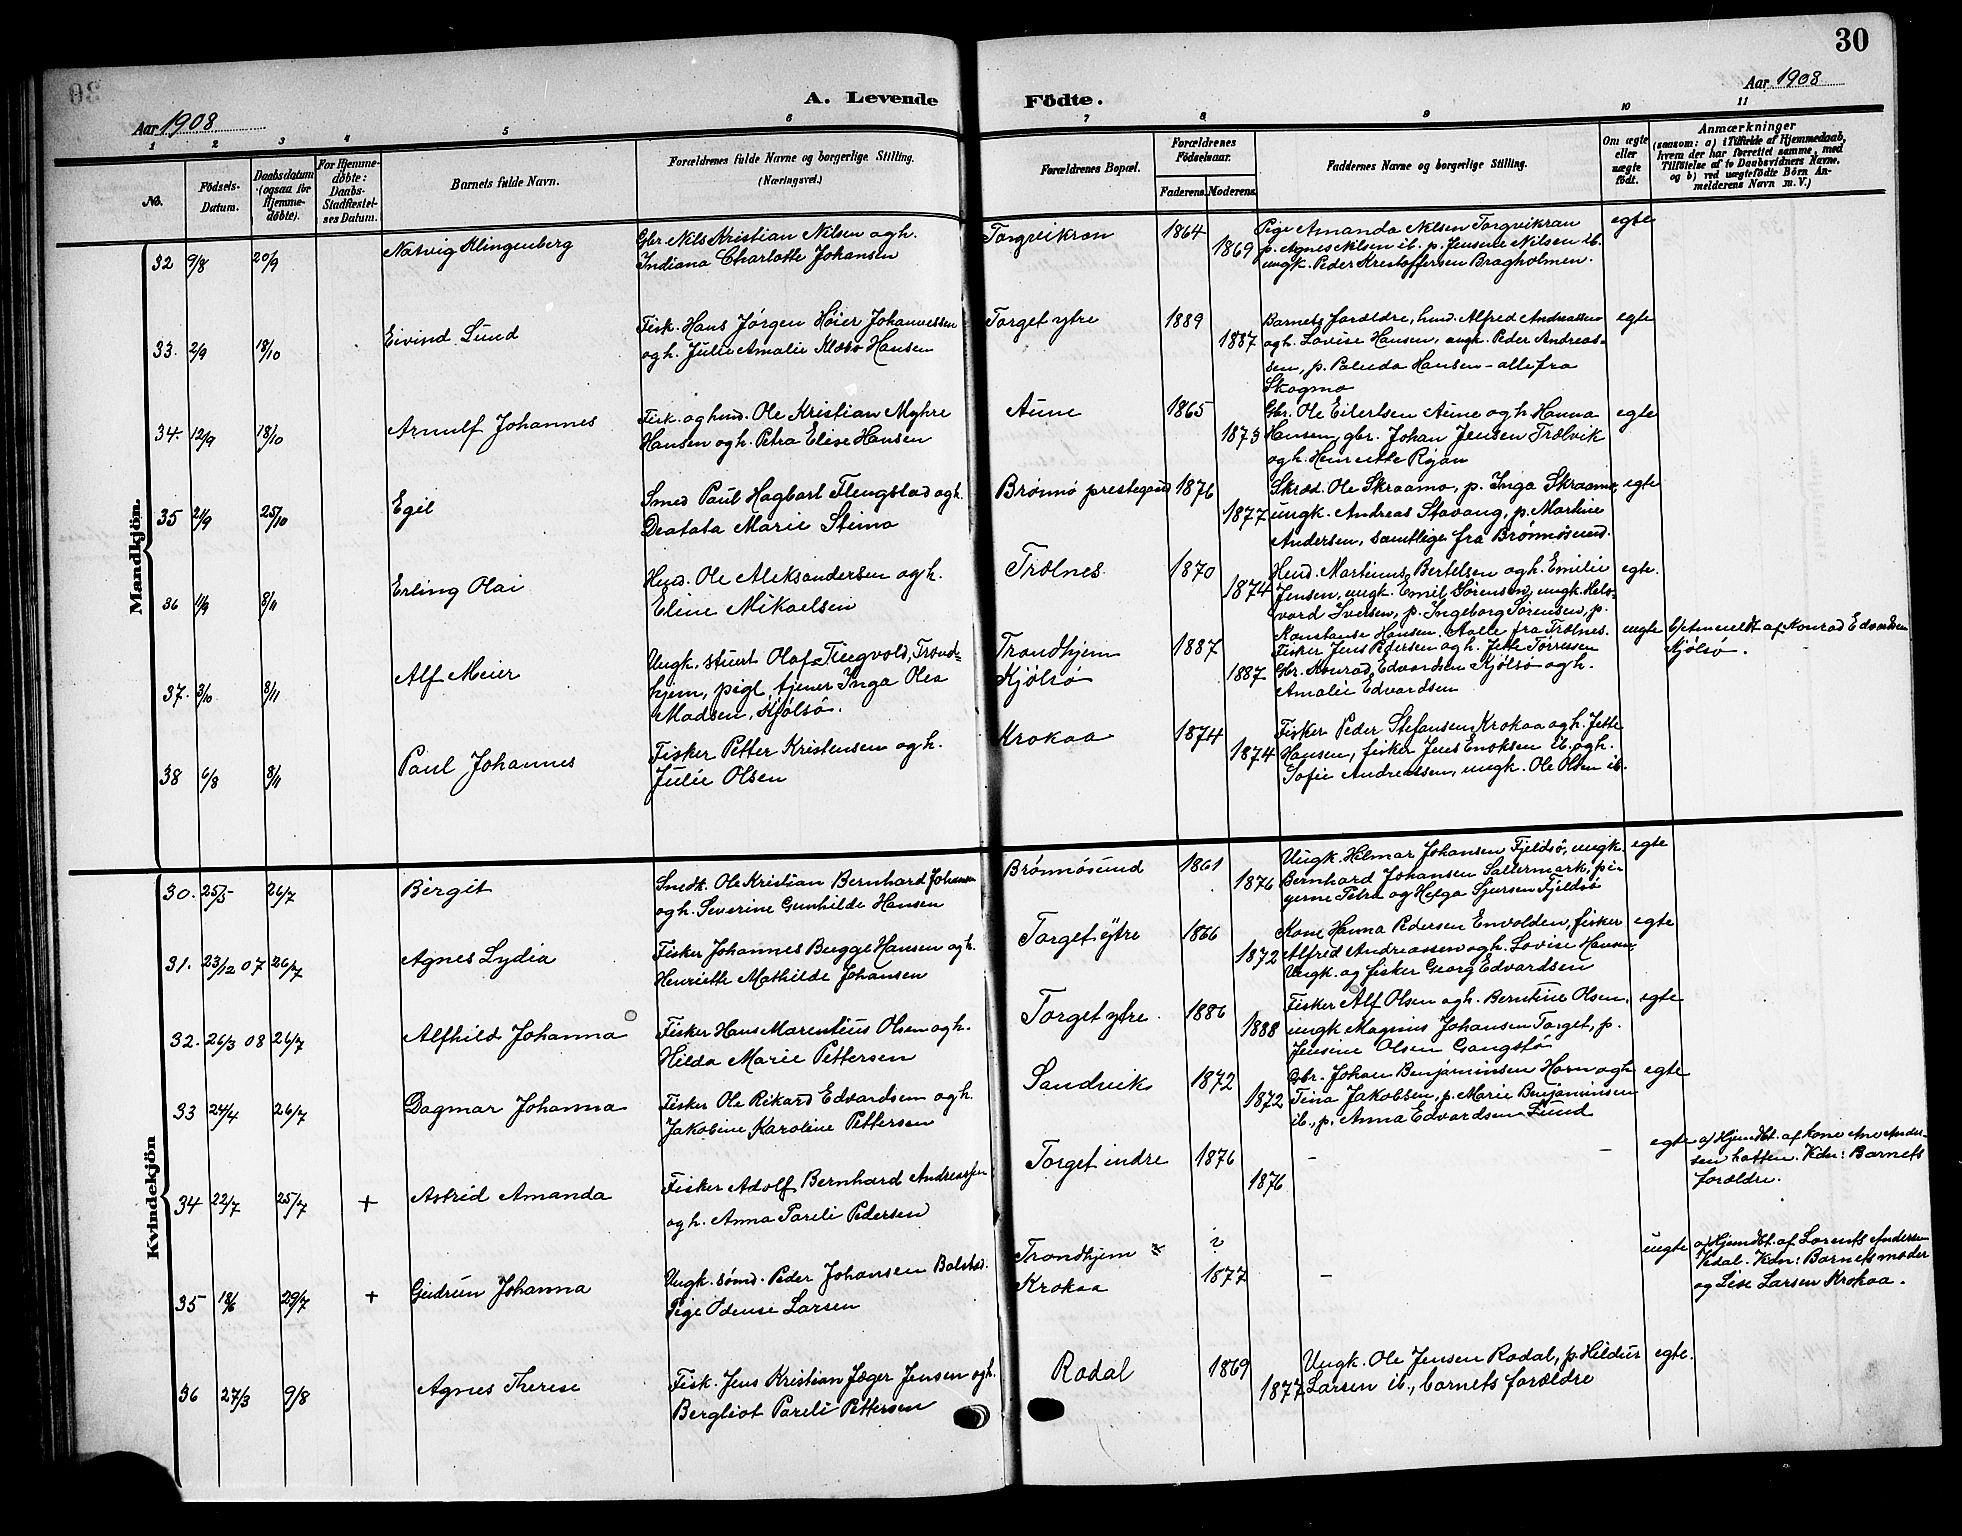 30
A. Levende Födte.
Aar 1908
Aar 1908
1 2 3 4 5 6 7 8 9 10 11
No.
Födsels-Datum.
Daabsdatum (ogsaa for Hjemmedöbte).
For Hjemmedöbte: Daabs-Stadfæstelses Datum.
Barnets fulde Navn.
Forældrenes fulde Navne og borgerlige Stilling. (Næringsvei.)
Forældrenes Bopæl.
Forældrenes Födselsaar.
Faderens. Moderens.
Faddernes Navne og borgerlige Stilling.
Om ægte eller uægte födt.
Anmærkninger
(saasom: a) i Tilfælde af Hjemmedaab, hvem der har forrettet samme, med Tilföielse af to Daabsvidners Navne, og b) ved uægtefödte Börn Anmelderens Navn m. V.)
Mandkjön.
32 9/8 20/9 Natvig Klingenberg
Gbr Nils Kristian Nilsen og h.
Indiana Charlotte Johansen
Torgvikran 1864 1869
Pige Amanda Nilsen Torgvikran
p. Agnes Nilsen ib. p. Jensine Nilsen ib.
ungk. Peder Kristoffersen Bragholmen.
egte
33. 2/9 18/10 Eivind Lund
Fisk. Hans Jørgen Høier Johannessen
og h. Julie Amalie Hansen
Torget ytre 1889 1887
Barnets foreldre, hmd. Alfred Andreassen
og h. Lovise Hansen, ungk. Peder Andreas-
sen, p. Hansen - alle fra
Skogmo
egte
34. 12/9 18/10 Arnulf Johannes
Fisk. og hmd. Ole Kristian Myhre
Hansen og h. Petra Elise Hansen
Aune 1865 1873
Gbr. Ole Eilertsen Aune og h. Hanna
Hansen, gbr. Johan Jensen Trælvik
og h. Henriette Røan
egte
35 21/9 25/10 Egil
Smed Paul Hagbart Flengstad og h.
Marie Stimo
Brønnø prestegaard 1876 1877
Skræd. Ole Skraamo, p. Inga Skraamo,
ungk. Andreas Stavang, p. Martine
Andersen, samtlige fra Brønnøsund.
egte
36 11/9 8/11 Erling Olai
Hmd. Ole Aleksandersen og h.
Eline Mikaelsen
Trælnes. 1870 1874
Hmd. Martinus Bertelsen og h. Emilie
Jensen, ungk. Emil Sørensen, ungk. Hals-
vard Iversen, p. Ingeborg Sørensen, p.
Konstanse Hansen. Aalle fra Trælnes.
egte.
37. 3/10 8/11 Alf Meier
Ungk. stuert Olaf Tingvold, Trond-
hjem, pige, tjener Inga Olea
Madsen, Kjølsø.
Trondhjem
Kjølsø
1887 1887
Fisker Jens Pedersen og h. Jette Torresen
Gbr. Konrad Edvardsen Kjølsø og h.
Amalie Edvardsen
uegte
b/ Anmeldt af Konrad Edvardsen
Kjølsø.
38 6/8 8/11 Paul Johannes
Fisker Petter Kristensen og h.
Julie Olsen
Krokaa 1874 1874
Fisker Peder Stefansen Krokaa og h. Jette
Hansen, fisker Jens Enoksen ib. og h.
Sofie Andreassen, ungk. Ole Olsen ib.
Kvindekjön
30. 25/5 26/7 Birgit
Smedk. Ole Kristian Bernhard Johansen
og h. Severine Gunhilde Hansen
Brønnøsund 1861 1876
Ungk. Hilmar Johansen Fjeldsø, ungk
Bernhard Johansen Saltermark, pi-
gerne Petra og Helga Sjursen Fjeldsø
egte
31. 23/12 07 26/7 Agnes Lydia
Fisker Johannes Bugge Hansen og h.
Henriette Mathilde Johansen
Torget ytre 1866 1872
Kone Hanna Pedersen Envolden, fisker
Alfred Andreassen og h. Lovise Hansen
Ungk. og fisker Georg Edvardsen
egte
32. 26/3 08 26/7 Alfhild Johanna
Fisker Hans Marentius Olsen og h.
Hilda Marie Pettersen
Torget ytre. 1886 1888
Fisker Alf Olsen og h. Berntine Olsen,
ungk Magnus Johansen Torget, p.
Jensine Olsen Gangstø
egte
33 24/4 26/7 Dagmar Johanna
Fisker Ole Rikard Edvardsen og h.
Jakobine Karoline Pettersen
Sandvik 1872 1872
Gbr. Johan Benjaminsen Horn og h
Tina Jakobsen, p. Marie Benjaminsen
ib., p. Anna Edvardsen Lund
egte
34 22/7 25/7 + Astrid Amanda
Fisker Adolf Bernhard Andreassen
og h. Anna Pareli Pedersen
Torget indre 1876 1876
- -
egte
a/ Hjemdbt. af kone Ane Ander-
sen hatten. Vidn: Barnets
foreldre.
35 18/6 29/7 + Gudrun Johanna
Ungk. sømd. Peder Johansen Balstad.
Pige Odense Larsen
Trondhjem ?
Krokaa
? 1877
-
uegte
a/ Hjemdbt. af Lorents Andersen
Vidal. Vidn: Barnets moder
og Lise Larsen Krokaa.
36 27/3 9/8 Agnes Therese
Fisk. Jens Kristian Jæger Jensen og h.
Bergliot Pareli Pettersen
Rodal 1869 1877
Ungk. Ole Jensen Rodal, p. Hildur
Larsen ib., barnets foreldre
egte.